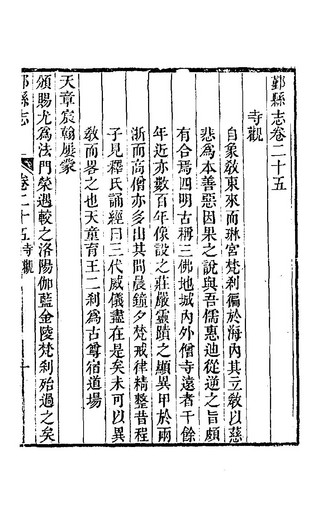 鄞縣志卷二十五
寺觀
自象敎東來而琳宮梵刹徧於海內其立敎以慈
悲爲本善惡因果之說與吾儒惠迪從逆之旨頗
有合焉四明古稱三佛地城內外僧寺遠者千餘
年近亦數百年像設之莊嚴靈蹟之顯異甲於兩
浙而高僧亦多出其間晨鐘夕梵戒律精整昔程
子見釋氏誦經曰三代威儀盡在是矣未可以異
敎而畧之也天童育王二刹爲古尊宿道場
天章宸翰屢蒙
頒賜尤爲法門榮遇較之洛陽伽藍金陵梵刹殆過之矣
鄞縣志
卷二十五寺觀
一